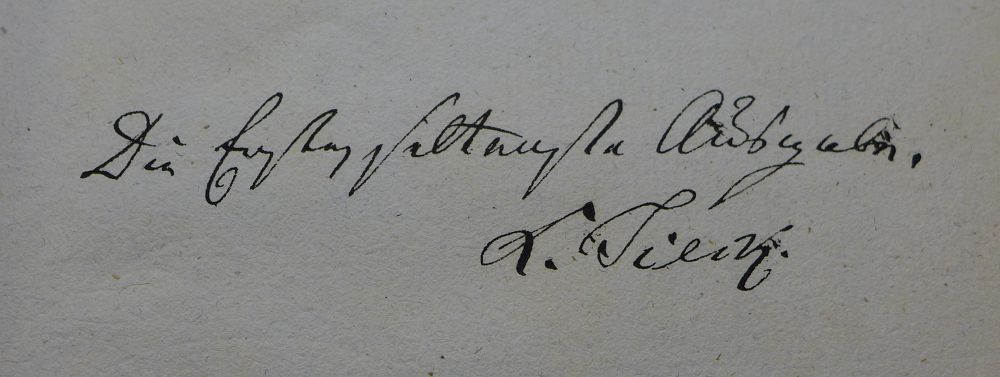 Die Erste, seltenste Ausgabe.
L. Tieck.